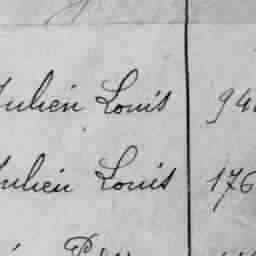 Julien Louis 94
Julien Louis 176